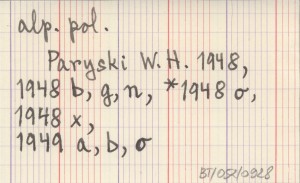 alp. pol.
Paryski W. H. 1948,
1948 b, g, n, *1948 o,
1948 x,
1949 a, b, o
BT/051/0928